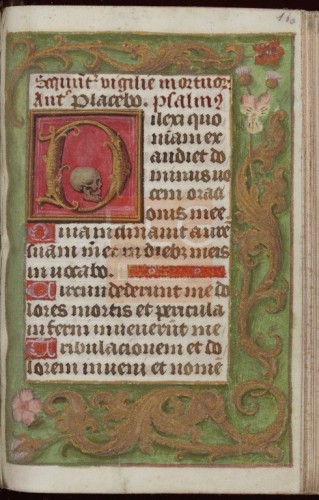 110
Sequūt͛ vigilie mortuor͛
Ant͛ Placebo. psalmꝰ
Dilexi quo
niam ex
audiet do
minus uo
cem oraci
onis mee.
Quia inclinauit aurē
suam m̄ et in diebꝫ meis
inuocabo.
Circundederunt me do
lores mortis et pericula
inferni inuenerūt me
Tribulacionem et do
lorem inueni et nomē